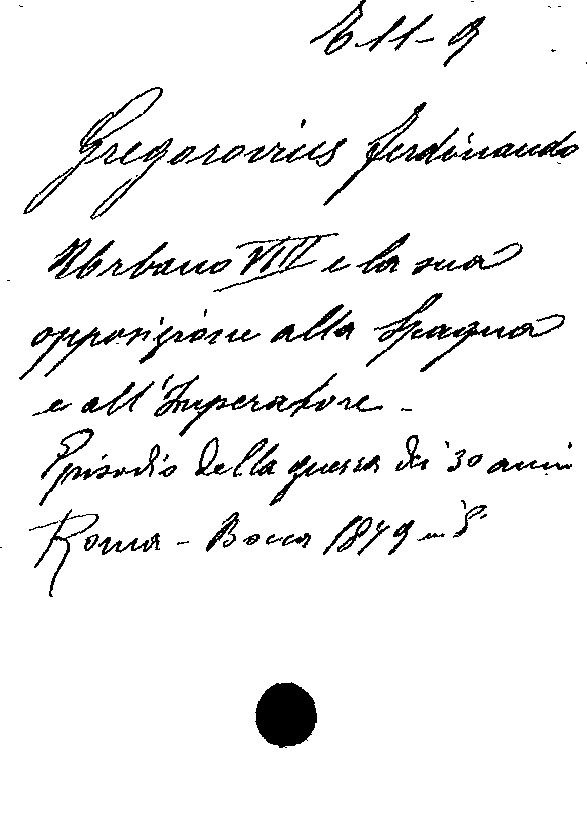 E 11-9
Gregorovius Ferdinando
Urbano VIII e la sua
opposizione alla Spagna
e all'Imperatore -
Episodio della guerra dei 30 anni
Roma - Bocca 1879 in 8°